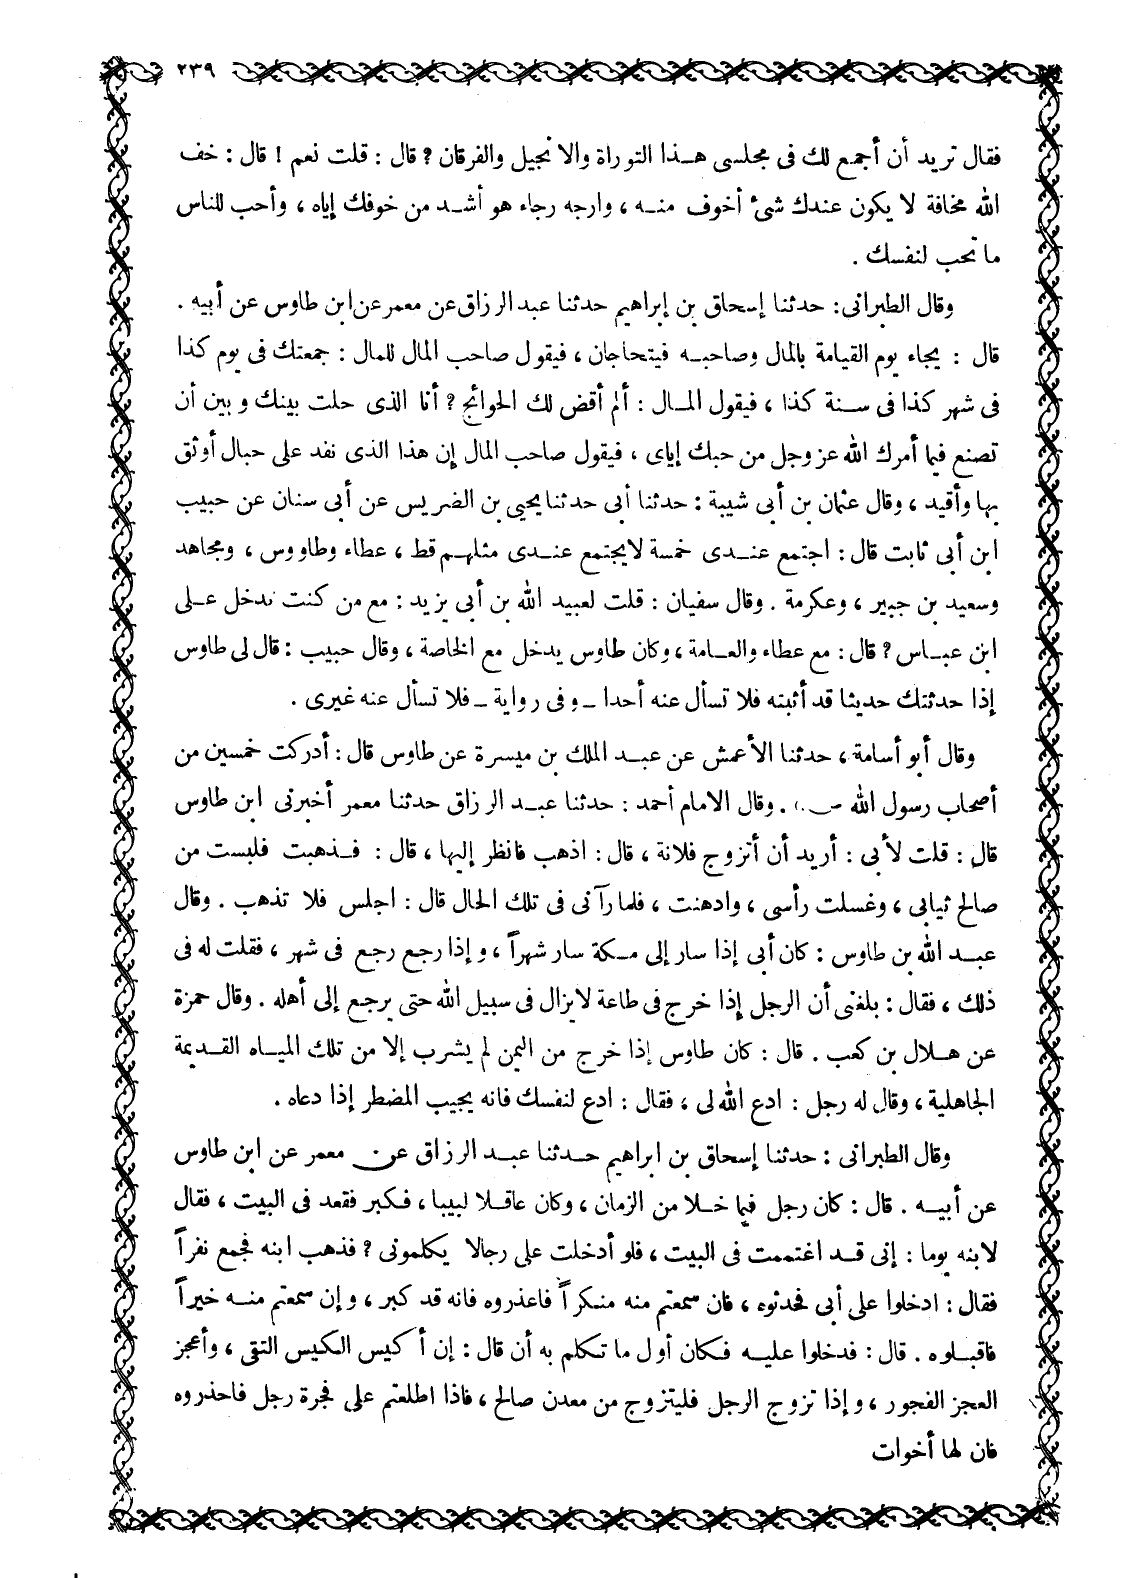 ٢٣٩
فقال تريد أن أجمع لك فى مجلسى هذا التوراة والانجيل والفرقان ؟ قال : قلت نعم ! قال : خف
الله مخافة لا يكون عندك شئ أخوف منه ، وارجه رجاء هو أشد من خوفك إياه ، وأحب للناس
ما تحب لنفسك .
وقال الطبرانى : حدثنا إسحاق بن إبراهيم حدثنا عبد الرزاق عن معمر عن ابن طاوس عن أبيه .
قال : يجاء يوم القيامة بالمال وصاحبه فيتحاجان ، فيقول صاحب المال للمال : جمعتك فى يوم كذا
فى شهر كذا فى سنة كذا ، فيقول المال : ألم أقض لك الحوائج ؟ أنا الذى حلت بينك وبين أن
تصنع فيما أمرك الله عز وجل من حبك إياى ، فيقول صاحب المال إن هذا الذى نفد على حبال أوثق
بها وأقيد ، وقال عثمان بن أبى شيبة : حدثنا أبى حدثنا يحيى بن الضريس عن أبى سنان عن حبيب
ابن أبى ثابت قال : اجتمع عندى خمسة لا يجتمع عندى مثلهم قط ، عطاء وطاووس ، ومجاهد
وسعيد بن جبير ، وعكرمة . وقال سفيان : قلت لعبيد الله بن أبى يزيد : مع من كنت تدخل على
ابن عباس ؟ قال : مع عطاء والعامة ، وكان طاوس يدخل مع الخاصة ، وقال حبيب : قال لى طاوس
إذا حدثتك حديثا قد أثبته فلا تسأل عنه أحدا ـ وفى رواية ـ فلا تسأل عنه غيرى .
وقال أبو أسامة ، حدثنا الأعمش عن عبد الملك بن ميسرة عن طاوس قال : أدركت خمسين من
أصحاب رسول الله ص . وقال الامام أحمد : حدثنا عبد الرزاق حدثنا معمر أخبرنى ابن طاوس
قال : قلت لأبى : أريد أن أتزوج فلانة ، قال : اذهب فانظر إليها ، قال : فذهبت فلبست من
صالح ثيابى ، وغسلت رأسى ، وادهنت ، فلما رآنى فى تلك الحال قال : اجلس فلا تذهب . وقال
عبد الله بن طاوس : كان أبى إذا سار إلى مكة سار شهراً ، وإذا رجع رجع فى شهر ، فقلت له فى
ذلك ، فقال : بلغنى أن الرجل إذا خرج فى طاعة لا يزال فى سبيل الله حتى يرجع إلى أهله . وقال حمزة
عن هلال بن كعب . قال : كان طاوس إذا خرج من اليمن لم يشرب إلا من تلك المياه القديمة
الجاهلية ، وقال له رجل : ادع الله لى ، فقال : ادع لنفسك فانه يجيب المضطر إذا دعاه .
وقال الطبرانى : حدثنا إسحاق بن ابراهيم حدثنا عبد الرزاق عن معمر عن ابن طاوس
عن أبيه . قال : كان رجل فيما خلا من الزمان ، وكان عاقلا لبيبا ، فكبر فقعد فى البيت ، فقال
لابنه يوما : إنى قد اغتممت فى البيت ، فلو أدخلت على رجالا يكلمونى ؟ فذهب ابنه فجمع نفراً
فقال : ادخلوا على أبى فحدثوه ، فان سمعتم منه منكراً فاعذروه فانه قد كبر ، وإن سمعتم منه خيراً
فاقبلوه . قال : فدخلوا عليه فكان أول ما تكلم به أن قال : إن أكيس الكيس التقى ، وأعجز
العجز الفجور ، وإذا تزوج الرجل فليتزوج من معدن صالح ، فاذا اطلعتم على فجرة رجل فاحذروه
فان لها أخوات